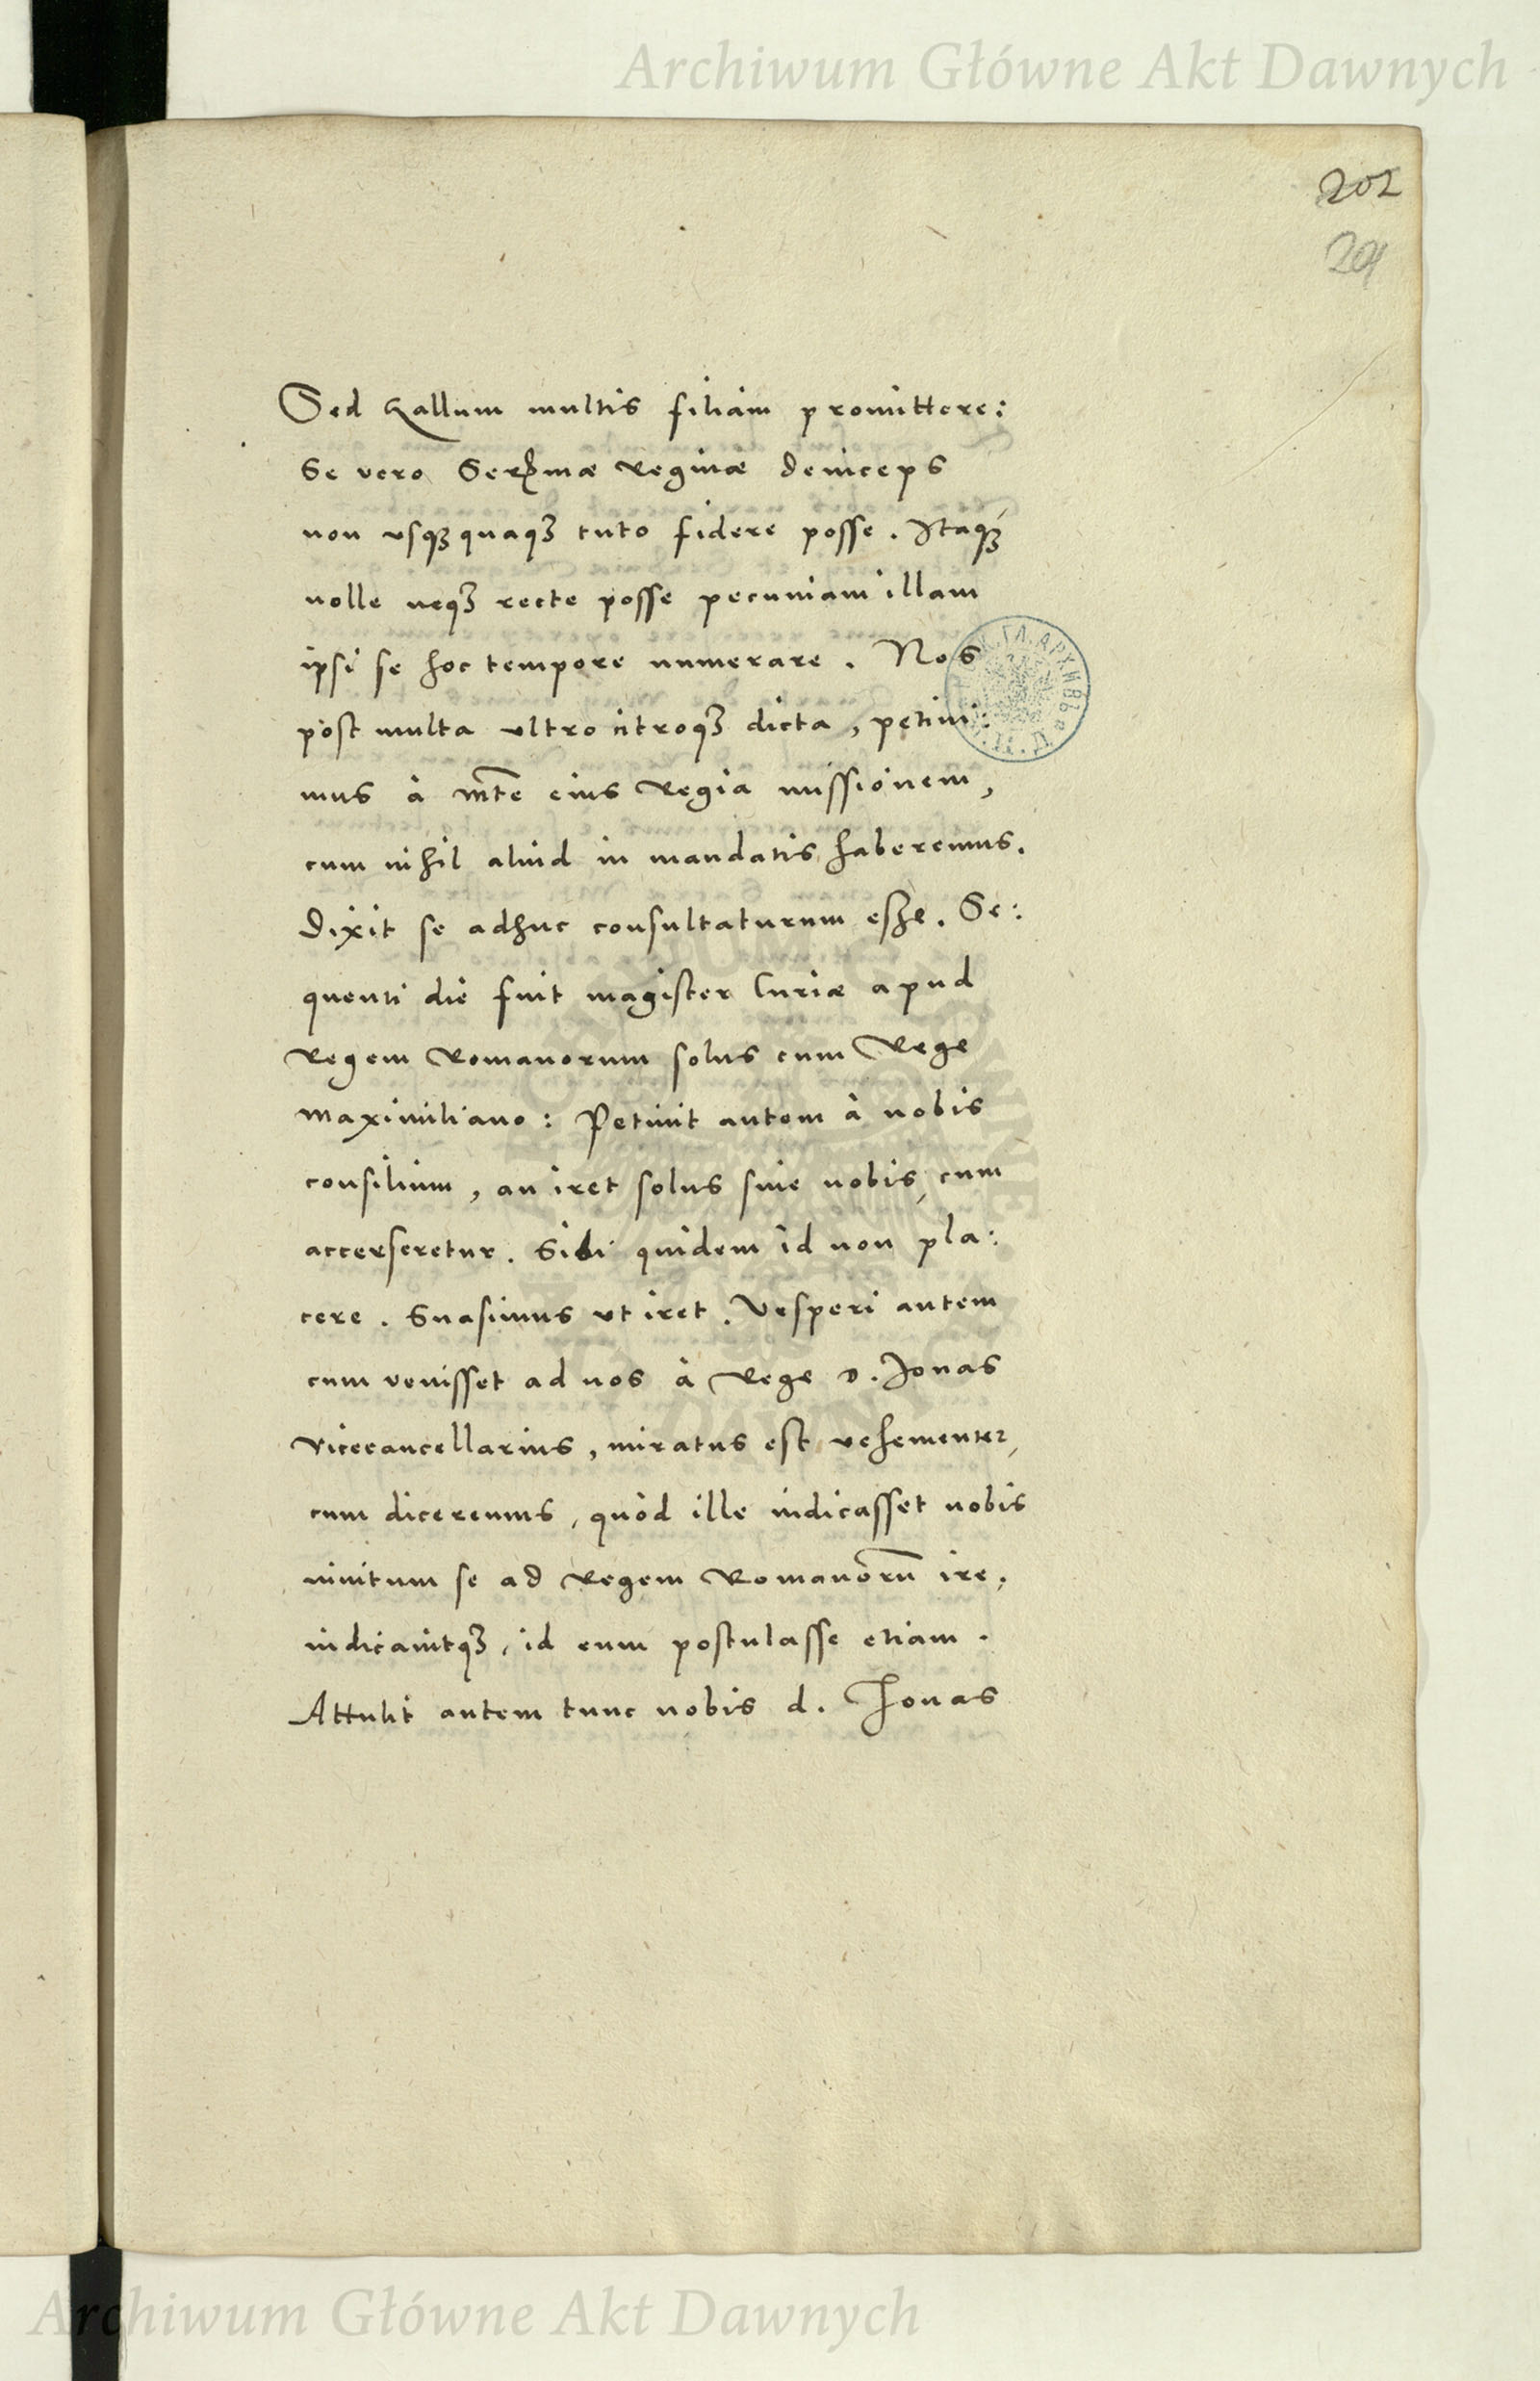 Archiwum Główne Akt Dawnych
202
201
Sed Gallum multis filiam promittere:
Se vero Serꝫmæ Reginæ deinceps
non usqꝫquaqꝫ tuto fidere posse. Itaqꝫ
nolle neqꝫ recte posse pecuniam illam
ipsi se hoc tempore numerare. Nos
post multa ultro citroqꝫ dicta, petivi:
mus à Mte eius Regia missionem,
cum nihil aliud in mandatis haberemus.
Dixit se adhuc consultaturum esse. Se:
quenti die fuit magister Curiæ apud
Regem Romanorum solus cum Rege
Maximiliano: Petiuit autem à nobis
consilium, an iret solus sine nobis, cum
accerseretur. Sibi quidem id non pla:
cere. Suasimus ut iret. Vesperi autem
cum venisset ad nos à Rege D. Jonas
Vicecancellarius, miratus est vehementer,
cum diceremus, quòd ille indicasset nobis
inuitum se ad Regem Romanorū ire,
indicauitqꝫ, id eum postulasse etiam.
Attulit autem tunc nobis d. Jonas
Archiwum Główne Akt Dawnych